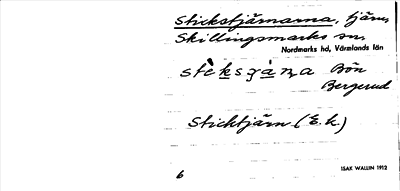 Stickstjärnarna, tjärn,
Skillingsmarks sn.
Nordmarks hd, Värmlands län
Bön
Bergerud
Sticktjärn (E.k.)
6 ISAK WALLIN 1912